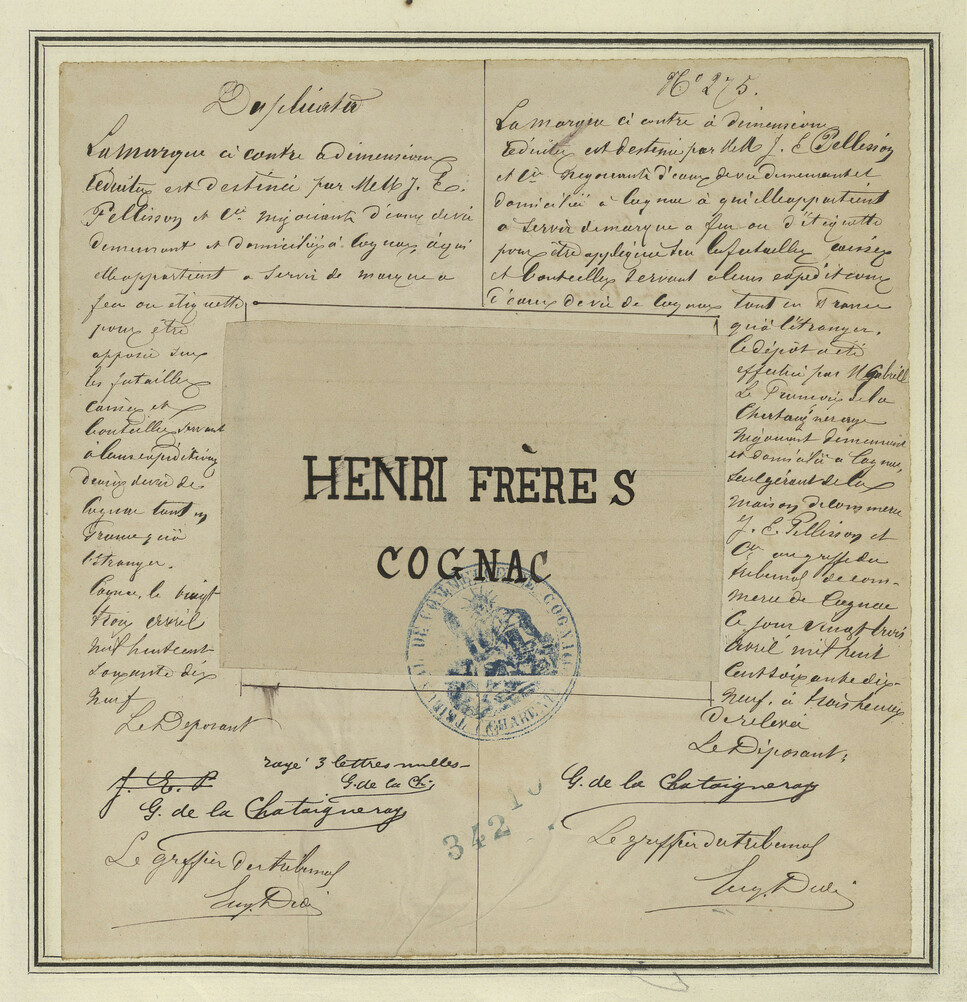 Duplicata
La marque ci contre à dimensions
réduites est destinée par MeM J. E.
Pellisson et Cie négociants d'eaux de vie
demeurant et domiciliés à Cognac, à qui
elle appartient à servir de marque à
feu ou étiquette
pour être
apposée sur
les futailles
caisses et
bouteilles servant
à leurs expéditions
d'eaux de vie de
Cognac tant en
France qu'à
l'étranger.
Cognac, le vingt
trois avril
mil huit cent
soixante dix
neuf
Le Déposant
rayé 3 lettres nulles
G. de la Ch.
J. E. P
G. de la Chataigneray
Le greffier du tribunal
No 275.
La marque ci contre à dimensions
réduites est destinée par MeM J. E Pellisson
et Cie négociants d'eaux de vie demeurant et
domiciliés à Cognac à qui elle appartient
à servir de marque à feu ou d'étiquette
pour être appliquée sur les futailles, caisses
et bouteilles servant à leurs expéditions
d'eaux de vie de Cognac tant en France
qu'à l'étranger.
Le dépôt a été
effectué par M Gabriel
de la
Chataigneraye
négociant demeurant
et domicilié à Cognac,
seul gérant de la
maison de commerce
J. E. Pellisson et
Cie au greffe du
tribunal de com-
merce de Cognac
ce jour vingt trois
avril mil huit
cent soixante dix-
neuf, à trois heures
de relevée
Le Déposant,
G. de la Chataigneray
Le greffier du tribunal
HENRI FRÈRES
COGNAC
TRIBUNAL DE COMMERCE DE COGNAC
(CHARENTE)
342